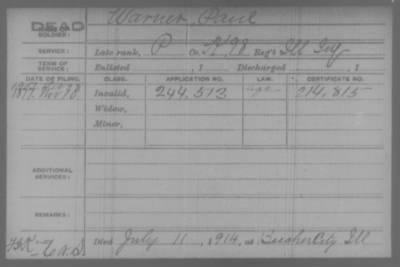 DEAD
NAME OF SOLDIER: Warner, Paul
SERVICE: Late rank, P Co. K, 98 Reg't Ill Inf
TERM OF SERVICE: Enlisted , 1 Discharged , 1
DATE OF FILING. CLASS. APPLICATION NO. LAW. CERTIFICATE NO.
1877. Nov 28 Invalid, 244.513 214.815
Widow,
Minor,
ADDITIONAL SERVICES:
REMARKS:
Died July 11, 1914, at Beecher City, Ill